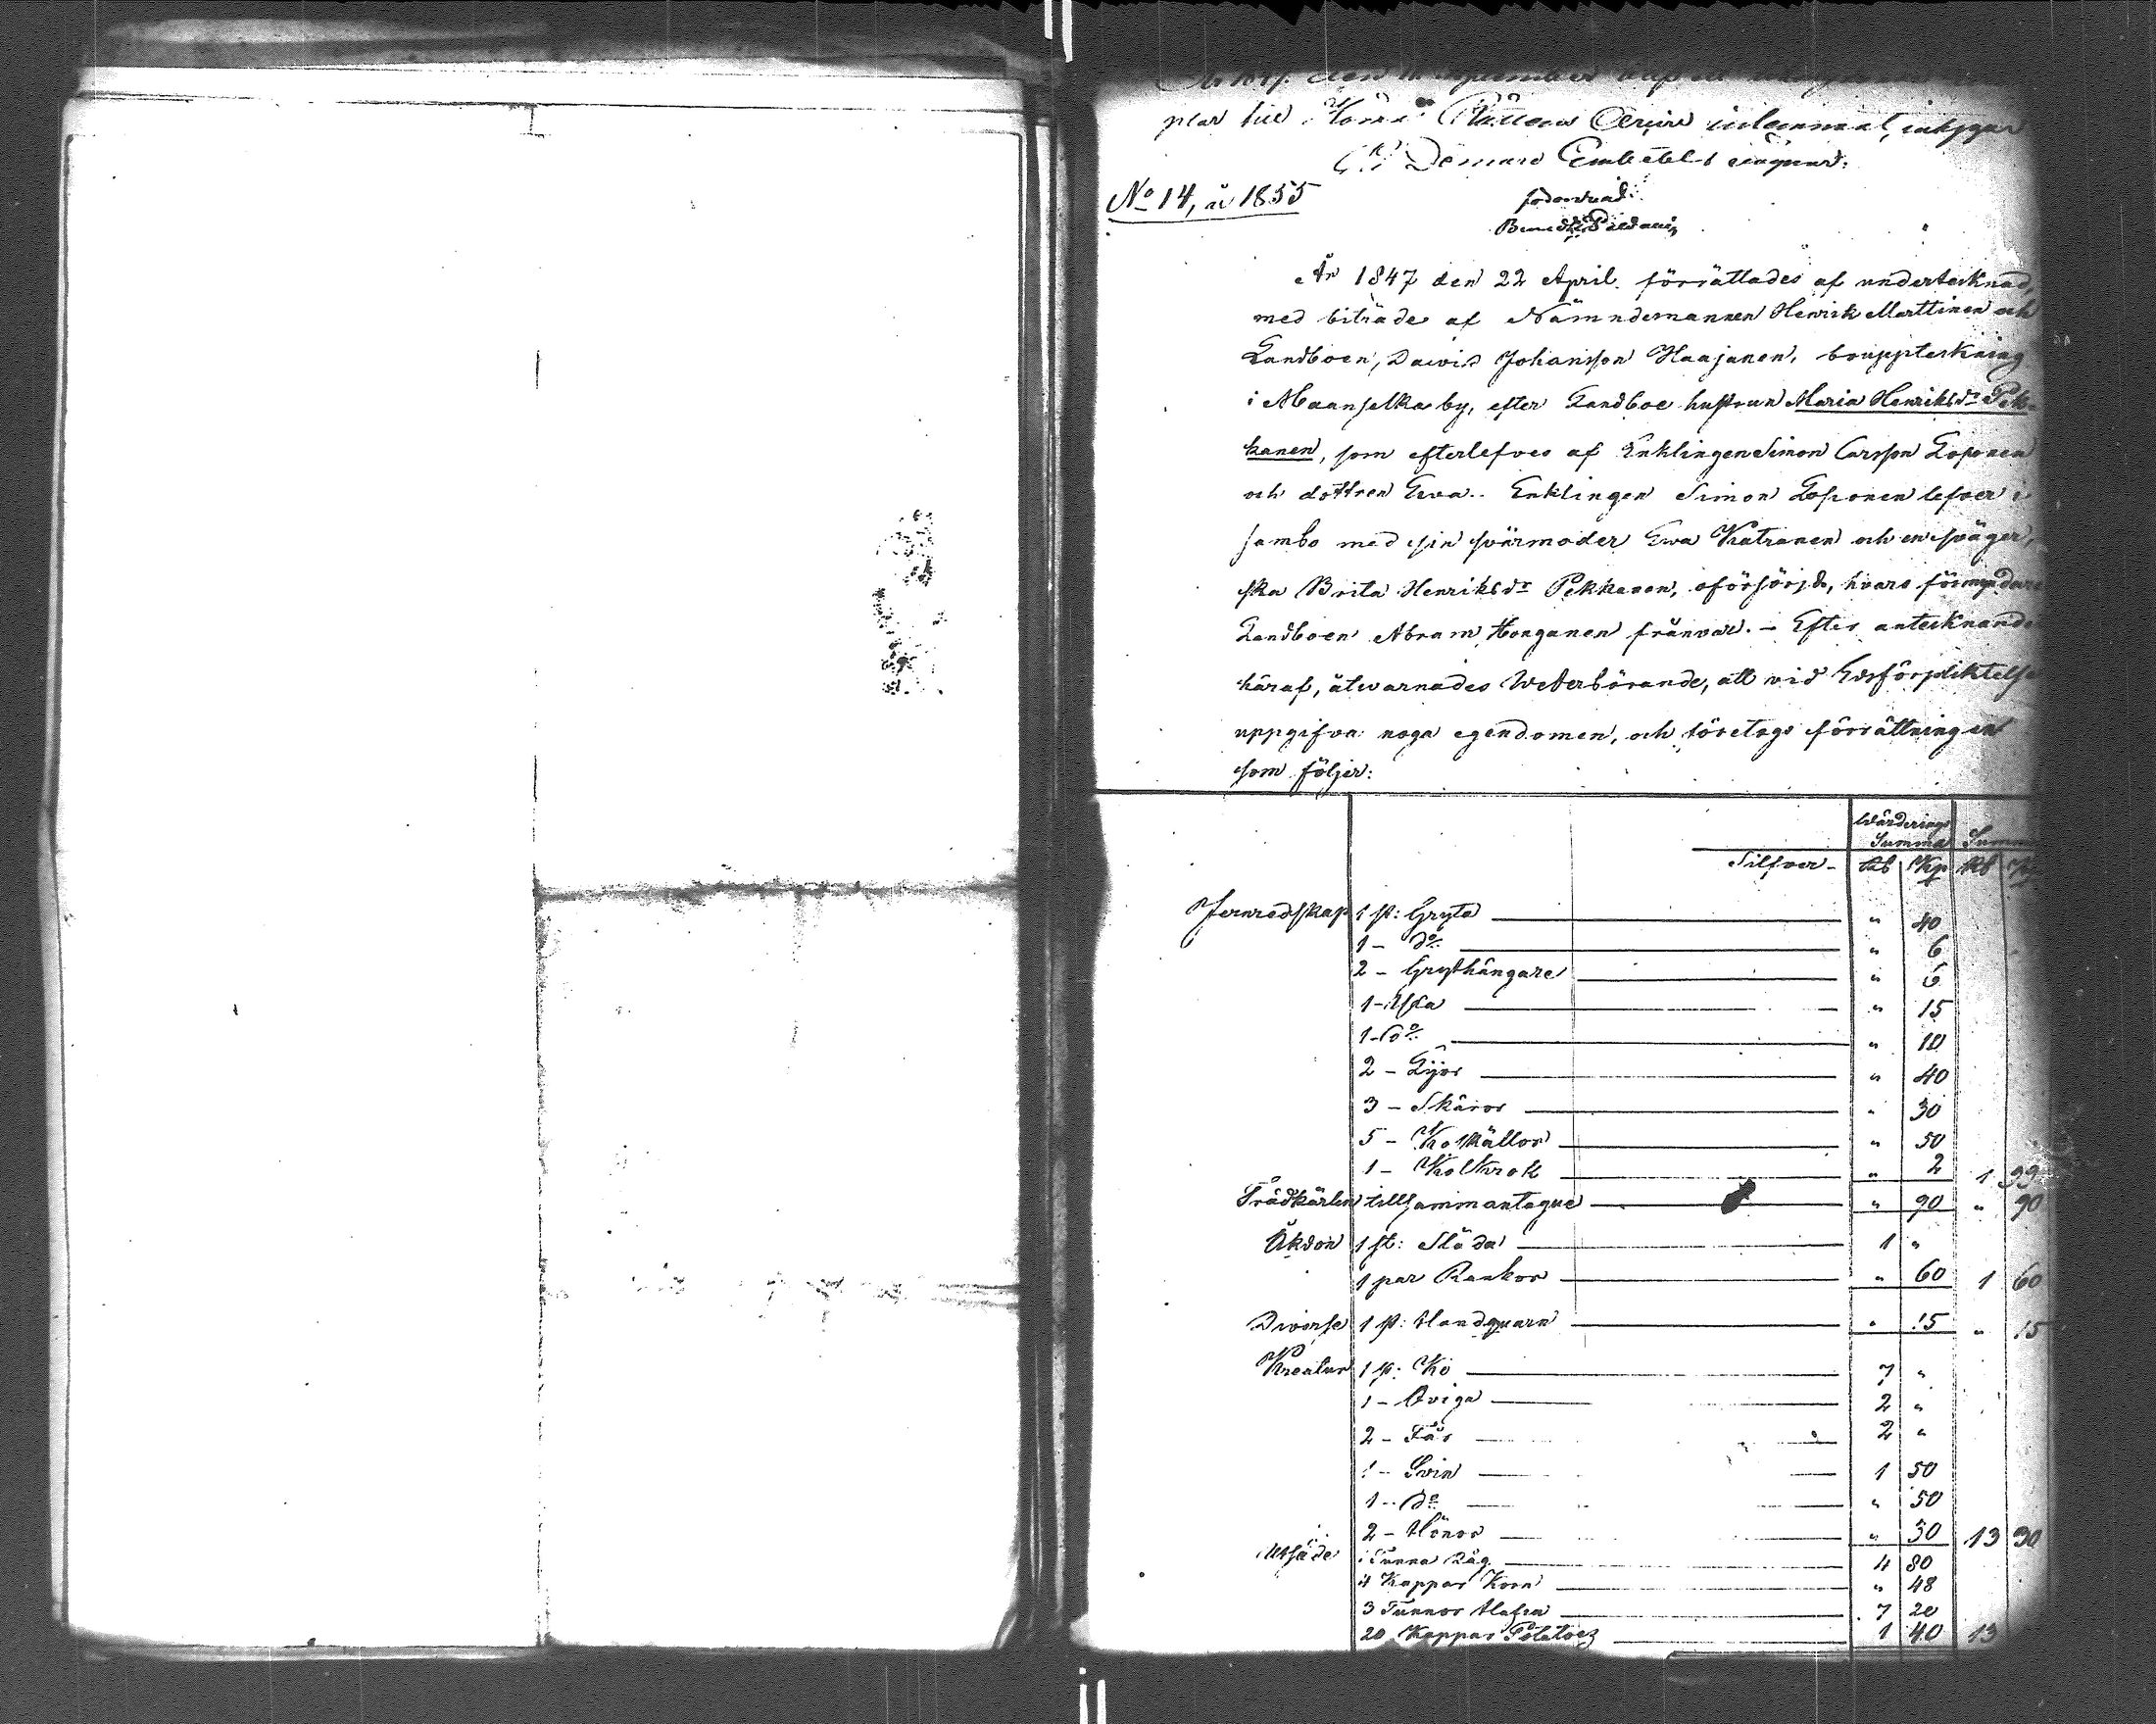 År 1847 den
plar til Härads Rättens Archiv inlemnat, intygar
Domare Embetets vägnar.
No 14, år 1855
År 1847 den 22 April förrättades af undertecknad,
med biträde af Nämndemannen Henrik Marttinen och
Landboen, Dawid Johansson Haajanen, bouppteckning
i Maanselka by, efter Landboe hustrun Maria Henriksdr Pek-
kanen, som efterlefves af Enklingen Simon Larsson Loponen
och dottren Ewa. Enklingen Simon Loponen lefver i
sambo med sin svärmoder Ewa Katranen och en sväger-
ska Brita Henriksdr Pekkanen, oförsörjd, hvars förmyndare
Landboen Abram Honganen frånvar. – Efter antecknande
häraf, åtwarnades Wederbörande, att vid Edsförpliktelse
uppgifva noga egendomen, och företogs förrättningen
som följer:
Wärderings
Summa Summa
Silfver - Rb Kp Rb Kp
Jernredskap 1 st: Gryta " 40
1 - do " 6
2 - Grythängare " 6
1 - Yxa " 15
1 - do " 10
2 - Lijor " 40
3 - Skäror " 30
5 - Koskällor " 50
1 - Kolkrok " 2 1 99
Trädkärlen tillsammantagne " 90 " 90
Åkdon 1 st: Släda 1 "
1 par Rankor " 60 1 60
Diverse 1 st: Handquarn " 15 " 15
Kreatur 1 st: Ko 7 "
1 - Qviga 2 "
2 - Får 2 "
1 - Svin 1 50
1 - do " 50
2 - Hönor " 30 13 30
Utsäde 1 Tunna Råg 4 80
4 Kappar Korn " 48
3 Tunnor Hafra 7 20
20 Kappar Potatoes 1 40 13